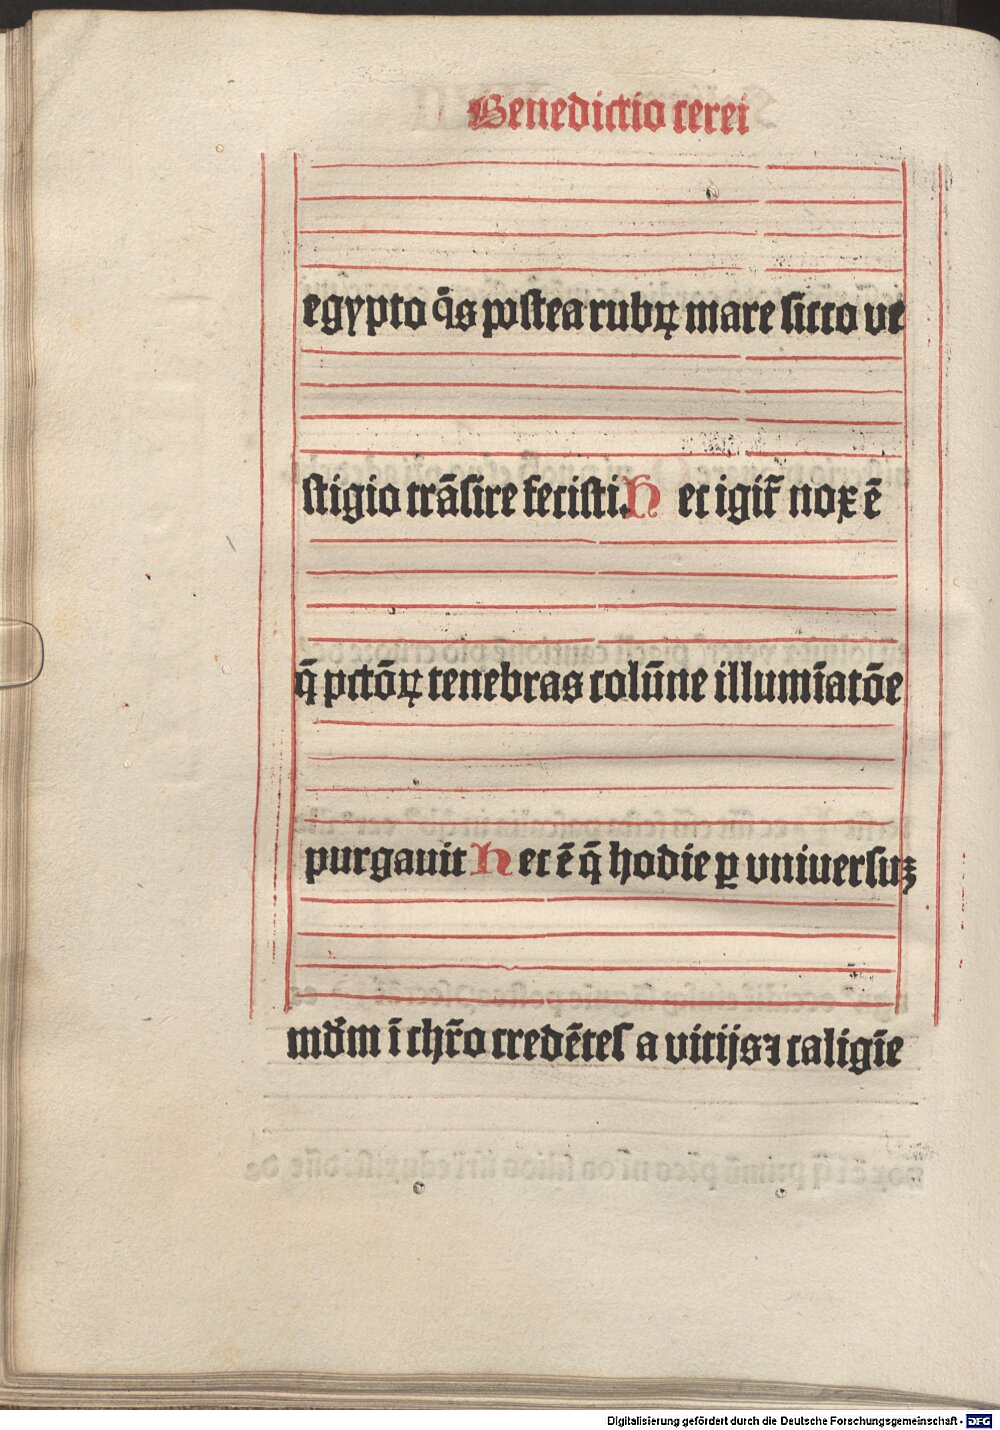 Benedictio cerei
egypto q̄s postea rubꝝ mare sicco ve
stigio trāsire fecisti. Hec igit̃ nox ē
q̄ pctōꝝ tenebras colūne illumīatōe
purgauit Hec ē q̄ hodie ꝑ vniuersuꝫ
mūdm ī chr̄o credētes a vicijs ⁊ caligīe
Digitalisierung gefördert durch die Deutsche Forschungsgemeinschaft - DFG